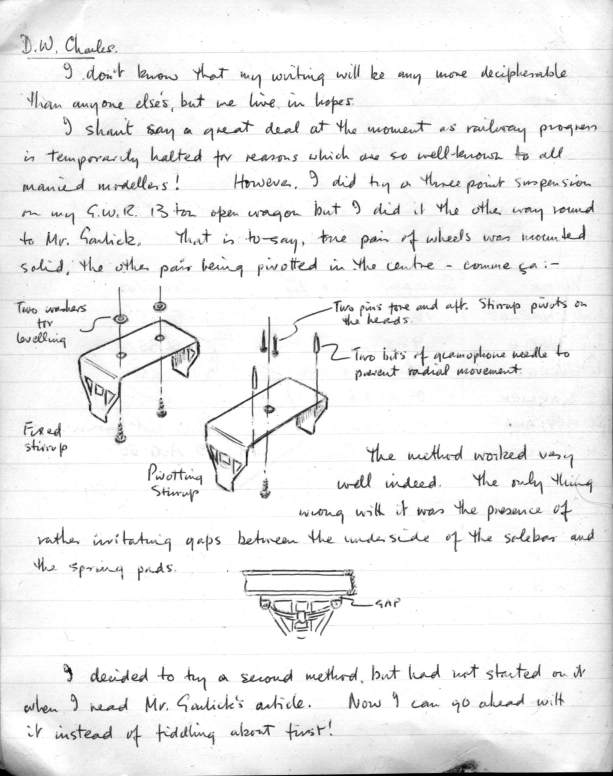 D.W. Charles.
I don't know that my writing will be any more decipherable
than anyone else's, but we live in hopes.
I shan't say a great deal at the moment as railway progress
is temporarily halted for reasons which are so well-known to all
married modellers! However, I did try a three point suspension
on my G.W.R. 13 ton open wagon but I did it the other way round
to Mr. Garlick. That is to-say, one pair of wheels was mounted
solid, the other pair being pivotted in the centre - comme ça :-
Two washers
for
levelling
Two pins fore and aft. Stirrup pivots on
the heads.
Two bits of gramophone needle to
prevent radial movement.
Fixed
stirrup
Pivotting
Stirrup
The method worked very
well indeed. The only thing
wrong with it was the presence of
rather irritating gaps between the underside of the solebar and
the spring pads.
GAP
I decided to try a second method, but had not started on it
when I read Mr. Garlick's article. Now I can go ahead with
it instead of fiddling about first!